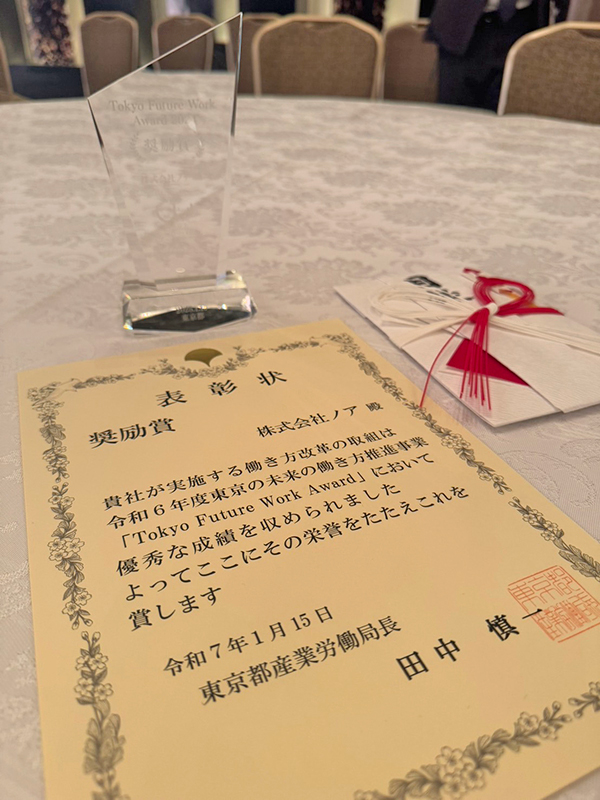 Tokyo Future Work
Award
奨励賞
東京都
表彰状
奨励賞
株式会社ノア 殿
貴社が実施する働き方改革の取組は
令和6年度東京の未来の働き方推進事業
「Tokyo Future Work Award」において
優秀な成績を収められました
よってここにその栄誉をたたえこれを
賞します
令和7年1月15日
東京都産業労働局長
田中 慎一